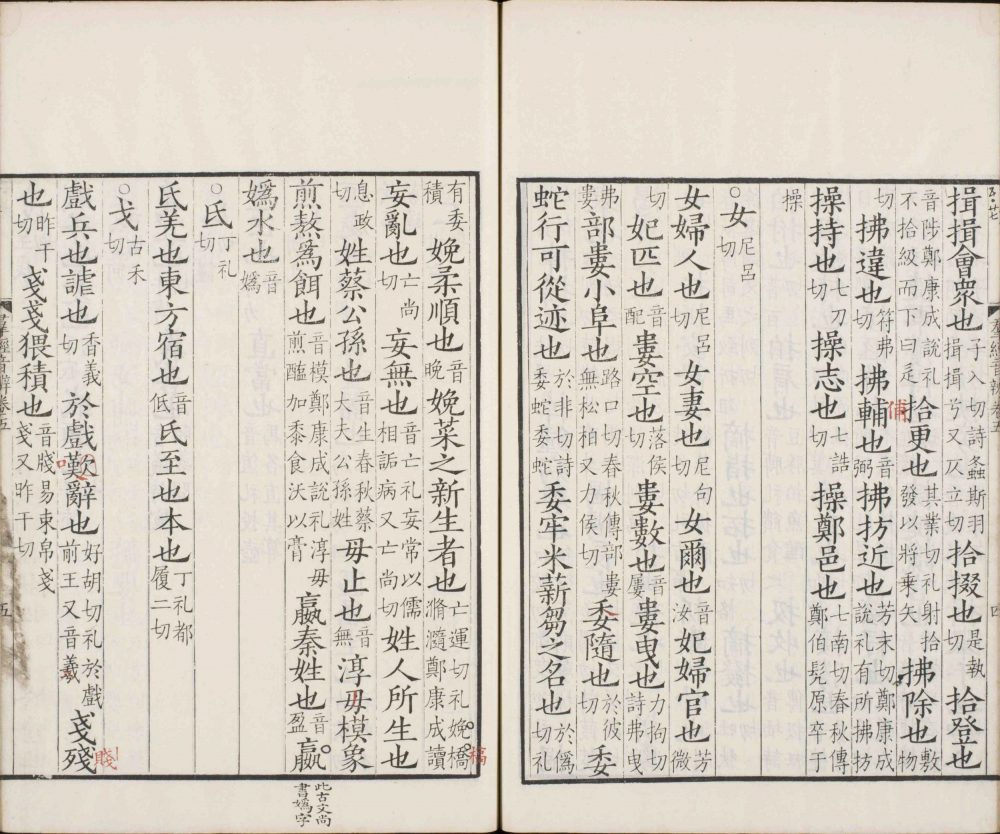 揖揖會衆也子入切詩螽斯羽揖揖兮又仄立切拾掇也是執切拾登也
音陟鄭康成說礼不拾級而下曰辵拾更也其業切礼射拾發以將乗矢拂除也敷物
切拂違也符弗切拂輔也音弼拂拭近也芳末切鄭康成說礼有所拂拭
操持也七刀切操志也七誥切操鄭邑也七南切春秋傳鄭伯髠原卒于
操
○女尼呂切
女婦人也尼呂切女妻也尼句切女爾也音汝妃婦官也芳微
切妃匹也音配婁空也落侯切婁數也音屢婁曳也力拘切詩弗曳
弗婁部婁小阜也路口切春秋傳部婁無松柏又力侯切委隨也於彼切委
蛇行可從迹也於非切詩委蛇委蛇委牢米薪芻之名也於僞切礼
有委積娩柔順也音晚娩菜之新生者也亡運切礼娩槁滫瀡鄭康成讀
妄亂也亡尚切妄無也音亡礼妄常以儒相詬病又亡尚切姓人所生也
息政切姓蔡公孫也音生春秋蔡大夫公孫姓毋止也音無淳毋模象
煎熬爲餌也音模鄭康成說礼淳毋煎醢加黍食沃以膏嬴秦姓也音盈嬴
嬀水也音嬀
○氐丁礼切
氐羌也東方宿也音低氐至也本也丁礼都履二切
○戈古禾切
戲兵也謔也香義切於戲歎辭也好胡切礼於戲前王又音羲戔殘
也昨干切戔戔猥積也音牋易束帛戔戔又昨干切
此古文尚書嬀字
稿
俌
賤
羣經音辨卷五
四
羣經音辨卷五
五